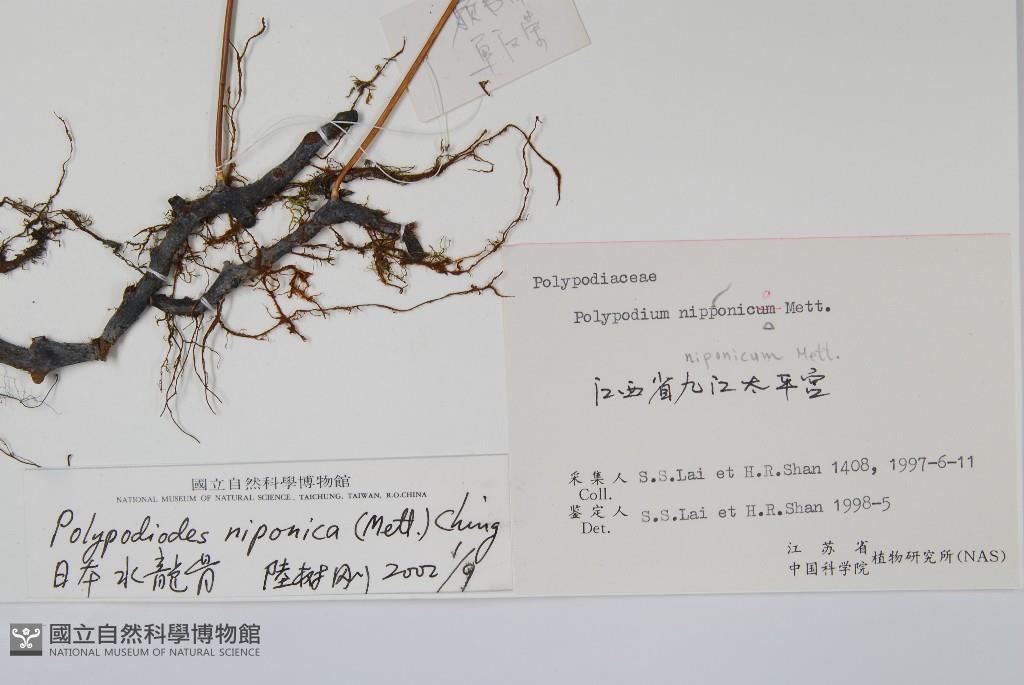 Polypodiaceae
Polypodium nipponicum Mett.
a
niponicum Mett.
江西省九江太平宫
采集人 S.S.Lai et H.R.Shan 1408, 1997-6-11
Coll.
鉴定人 S.S.Lai et H.R.Shan 1998-5
Det.
江苏省
中国科学院 植物研究所(NAS)
國立自然科學博物館
NATIONAL MUSEUM OF NATURAL SCIENCE, TAICHUNG, TAIWAN, R.O.CHINA
Polypodiodes niponica (Mett.) Ching
日本水龍骨 陸樹剛 2002 1/9
國立自然科學博物館
NATIONAL MUSEUM OF NATURAL SCIENCE